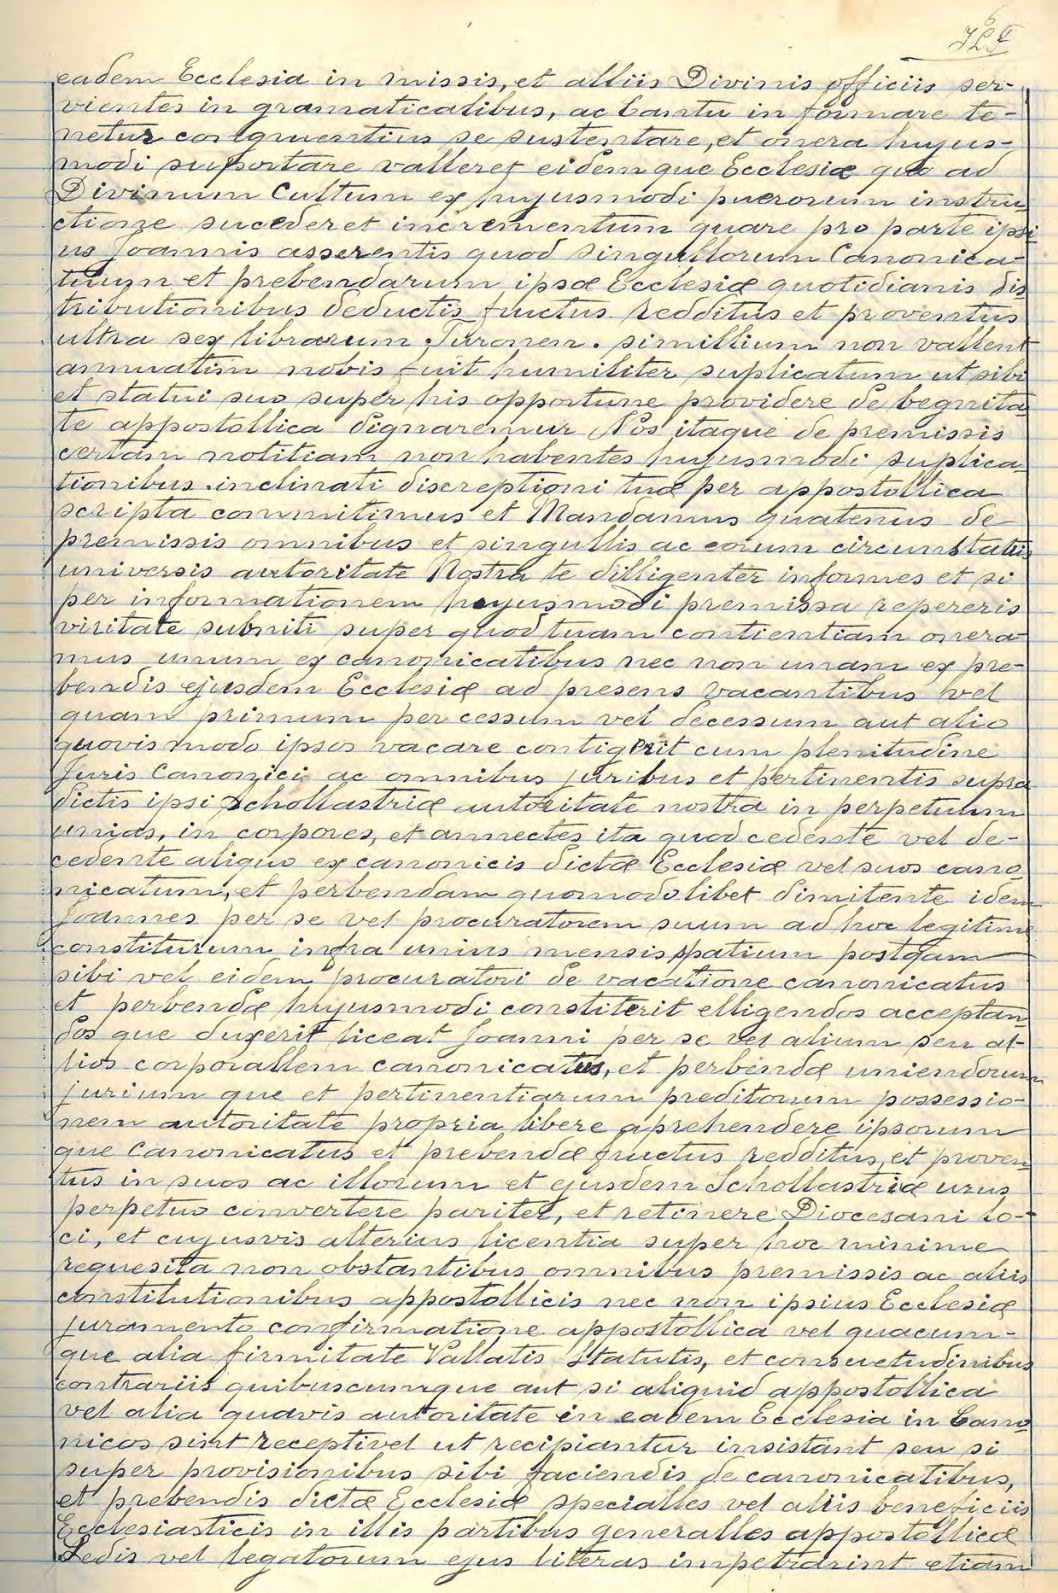 eadem Ecclesia in missis, et alliis Divinis officiis ser-
vientes in gramaticatibus, ac Cantu in formare te-
netur congruentius se sustentare, et onera hujus-
modi suportare valleret eidemque Ecclesiæ quo ad
Divinum Cultum ex hujusmodi puerorum instru
ctione sucederet incrementum quare pro parte ipsi
us Joannis asserentis quod singullorum Canonica-
tuum et prebendarum ipsæ Ecclesiæ quotidianis dis
tributionibus deductis fructus redditus et proventus
ultra sex librarum Turonen. simillium non vallent
annuatim nobis fuit humiliter suplicatum ut sibi
et statui suo super his opportune providere de begnita
te appostollica dignaremur Nos itaque de premissis
certam notitiam non habentes hujusmodi suplica-
tionibus inclinati discreptioni tuæ per appostollica
scripta commitimus et Mandamus quatenus de
premissis omnibus et singullis ac eorum circumstatiis
universis autoritate Nostra te dilligenter informes et si
per informationem hujusmodi premissa repereris
viritate subniti super quod tuam contientiam onera-
mus unum ex canonicatibus nec non unam ex pre-
bendis ejusdem Ecclesiæ ad presens vacantibus vel
quam primum per cessum vel decessum aut alio
quovis modo ipsos vacare contigerit cum plenitudine
Juris Canonici ac omnibus juribus et pertinentis supra
dictis ipsi Schollastriæ autoritate nostra in perpetuum
unias, in corpores, et annectes ita quod cedente vel de-
cedente aliquo ex canonicis dictæ Ecclesiæ vel suos cano
nicatum, et perbendam quomodolibet dimitente idem
Joannes per se vel procuratorem suum ad hoc legitime
constiturum infra unius mensis spatium postqam
sibi vel eidem procuratori de vacatione canonicatus
et perbendæ hujusmodi constiterit elligendos acceptan-
dos que duxerit liceat Joanni per se vel alium seu al-
lios corporallem canonicatus, et perbendæ uniendorum
jurium que et pertinentiarum preditorum possessio-
nem autoritate propria libere aprehendere ipsorum
que Canonicatus et prebendæ fructus redditus, et proven
tus in suos ac illorum et ejusdem Schollastriæ usus
perpetuo convertere pariter, et retinere Diocesani lo-
ci, et cujusvis alterius licentia super hoc minime
requesita non obstantibus omnibus premissis ac aliis
constitutionibus appostollicis nec non ipsius Ecclesiæ
juramento confirmatione appostollica vel quacum-
que alia firmitate Vallatis Statutis, et consuetudinibus
contrariis quibuscumque aut si aliquid appostollica
vel alia quavis autoritate in eadem Ecclesia in Cano
nicos sint receptivel ut recipiantur insistant seu si
super provisionibus sibi faciendis de canonicatibus,
et prebendis dictæ Ecclesiæ specialles vel aliis beneficiis
Ecclesiasticis in illis partibus generalles appostollicæ
Sedis vel legatorum ejus literas impetrarint etiam